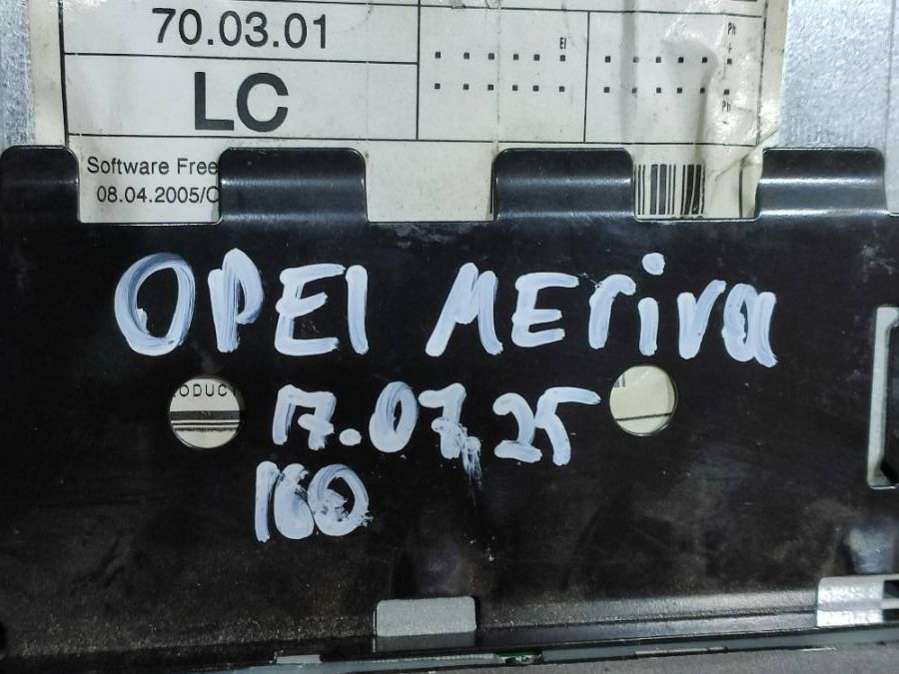 70.03.01
LC
El
Ph
Ph
Software Free
08.04.2005/C
OPEl MEriva
ODUC
17.07.25
160